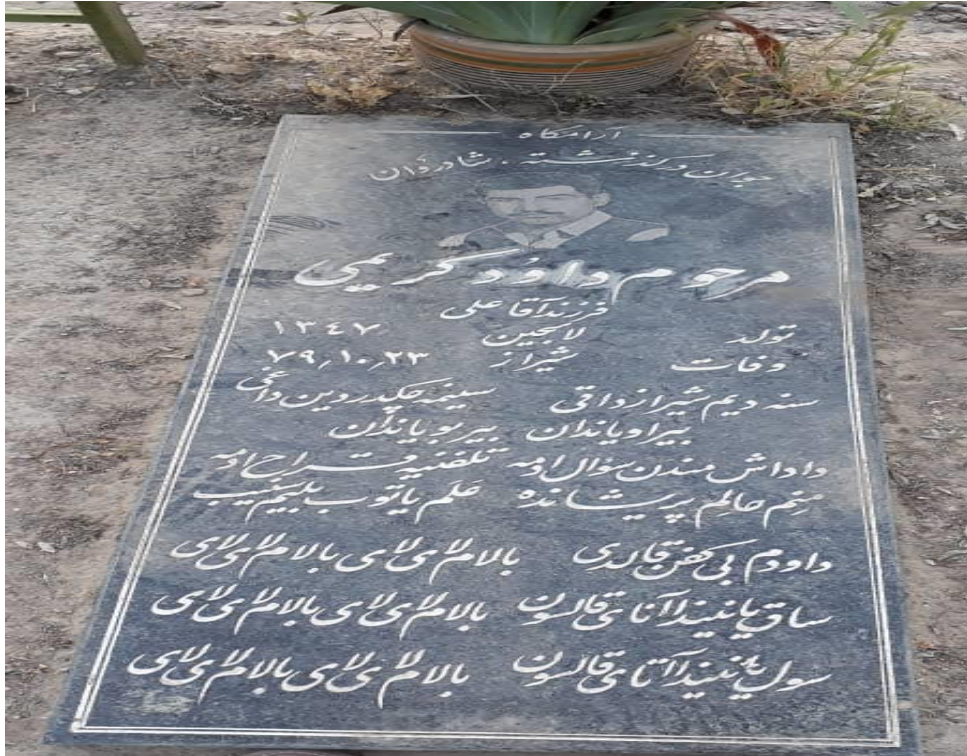 آرامگاه
جوان درگذشته، شادروان
مرحوم داود کریمی
فرزند آقا علی
تولد لالجین ۱۳۴۷
وفات شیراز ۷۹٫۱۰٫۲۳
سنه دیم شیراز داقی سینمه چکدردین داغی
بیر اویاندان بیر بویاندان
داداش مندن سؤال ادمه تلفنیه
منم حالم پریشانده علم یاتوب بلیم سنیب
داودم بی کفن قالدی بالام لای لای بالام لای لای
ساق یانیندا آنای قالسون بالام لای لای بالام لای لای
سول یانیندا آتای قالسون بالام لای لای بالام لای لای